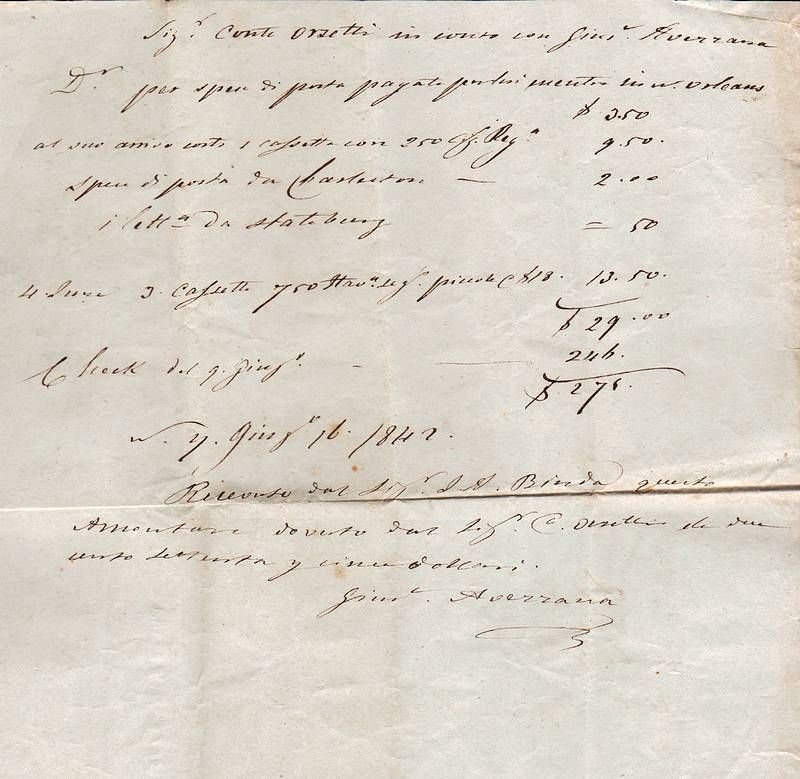 Sig.r Conte Orsetti in conto con Gius.e Avezzana
D.r per spese di posta pagate per lui mentre in N. Orleans
$ 3.50
al suo arrivo costi 1 cassetta con 250 Reg.a 9.50.
spese di posta da Charleston — 2.00
1 lett.a da Stateburg = 50
4 3. cassette 750 Hav.a seg. piccole $18. 13.50.
$ 29.00
Check del 9. Giug.o — 246.
$ 275.
N. Y. Giug.o 16. 1842.
Ricevuto dal Sig.r J. A. Binda questo
Amontare dovuto dal Sig.r C. Orsetti de due
cento settenta y cinco dollari.
Gius.e Avezzana